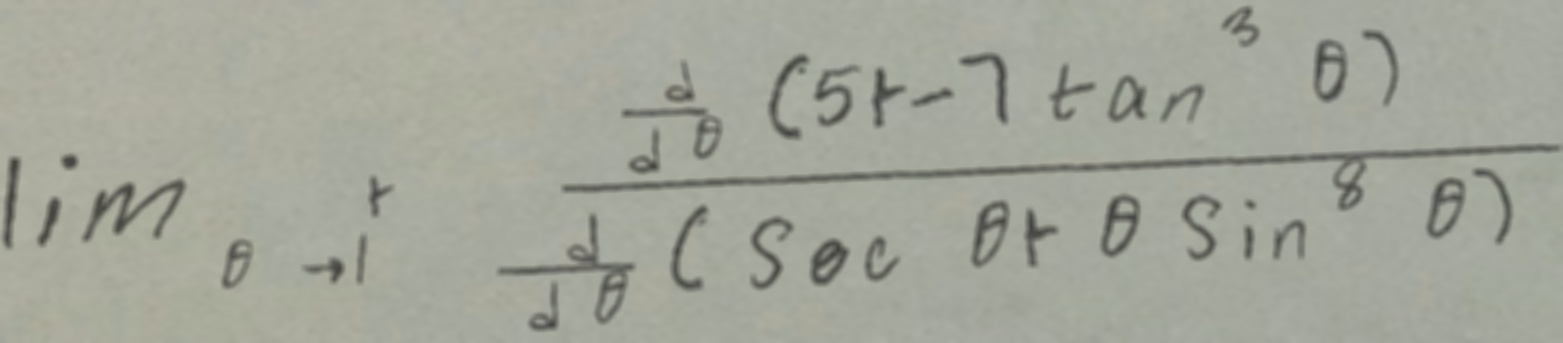 \lim_{\theta \to 1^+} \frac{\frac{d}{d\theta} (5 + -7 \tan^3 \theta)}{\frac{d}{d\theta} (\sec \theta + \theta \sin^8 \theta)}